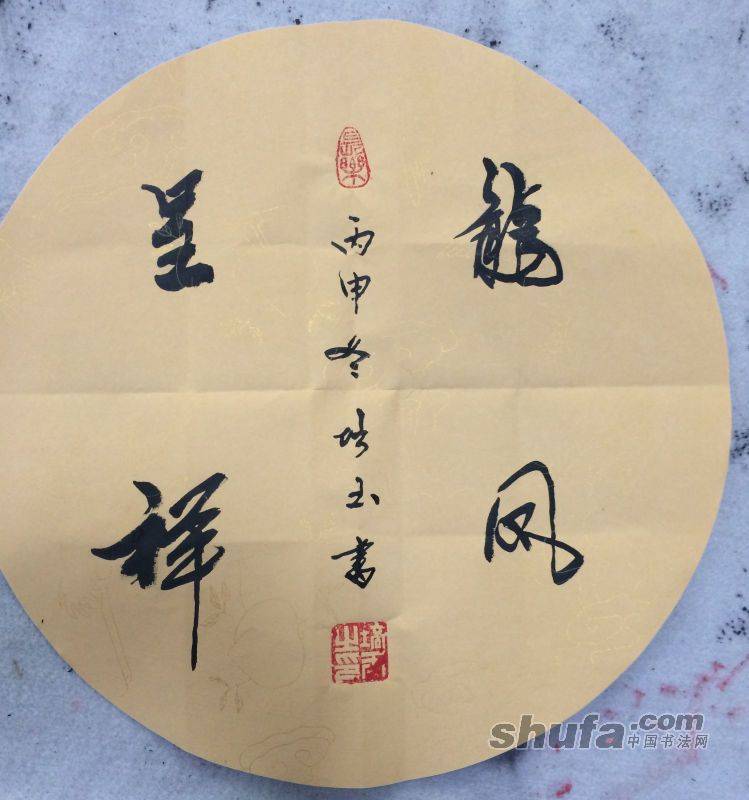 龍鳳
呈祥
丙申冬培玉書
shufa.com
中国书法网